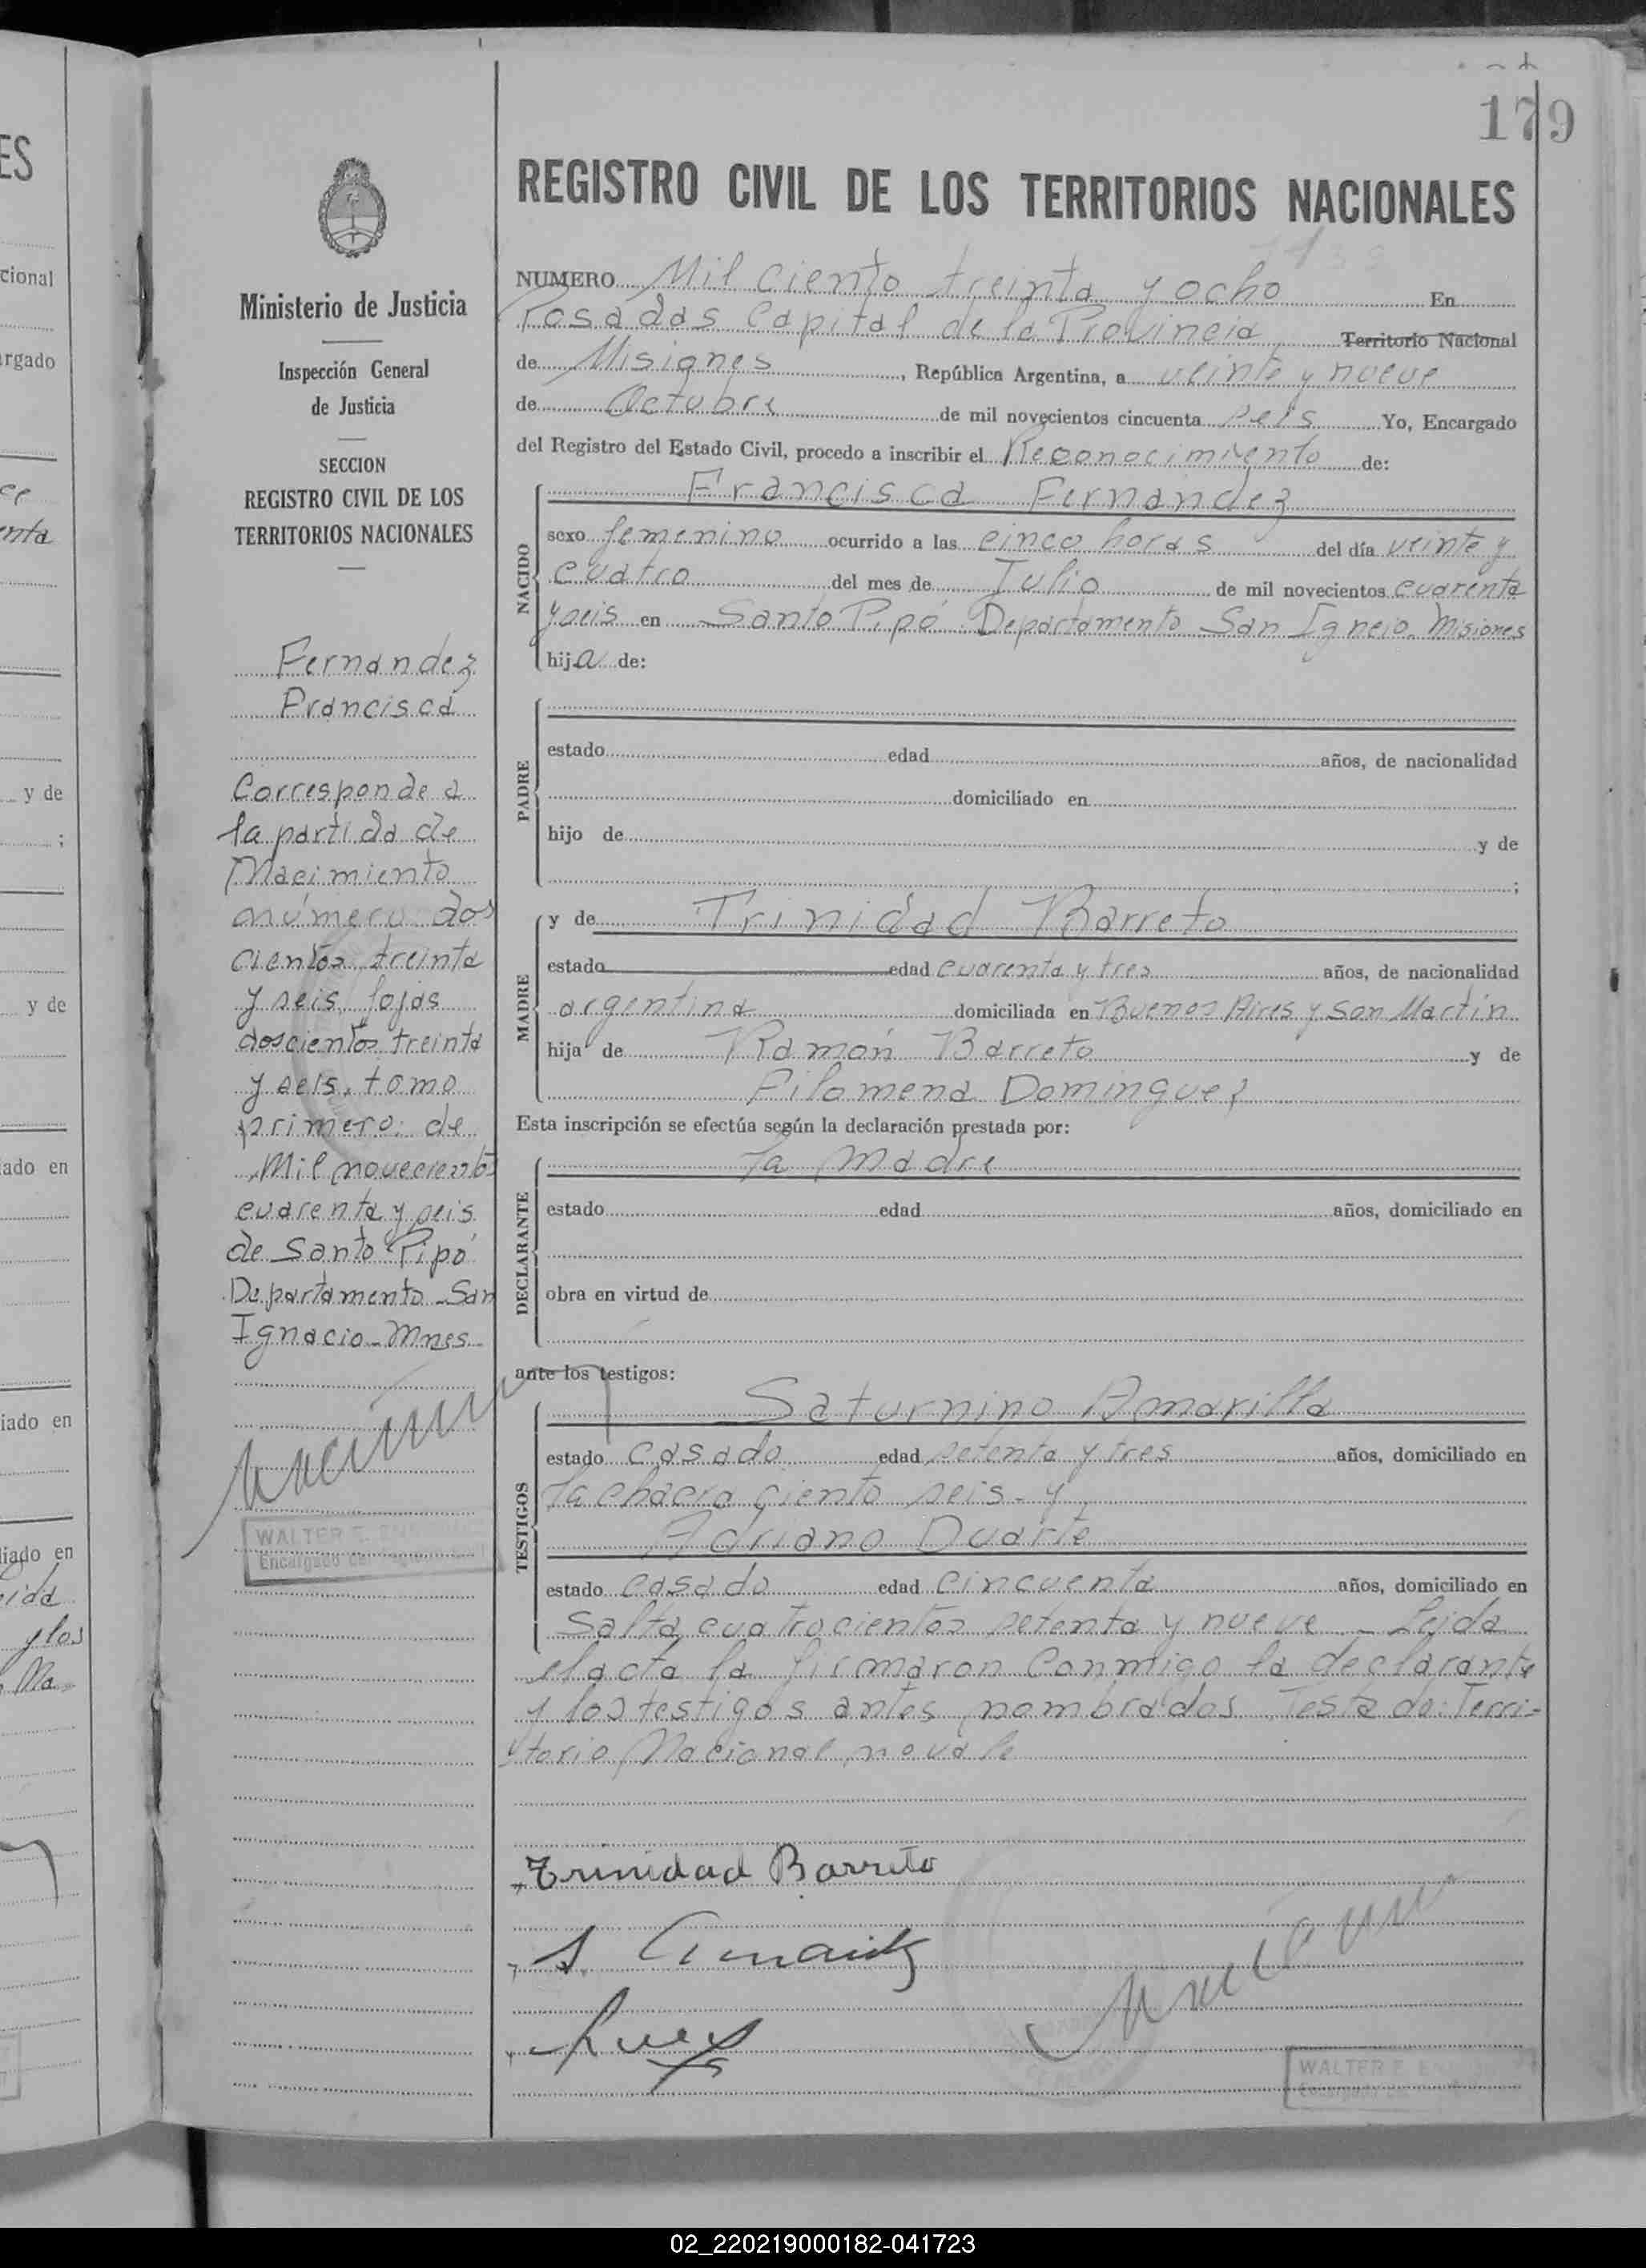 ES
cional
rgado
enta
y de
;
y de
ado en
iado en
liado en
y los
Ma
179
REGISTRO CIVIL DE LOS TERRITORIOS NACIONALES
Ministerio de Justicia
Inspección General
de Justicia
SECCION
REGISTRO CIVIL DE LOS
TERRITORIOS NACIONALES
Fernandez
Francisca
Corresponde a
la partida de
Nacimiento
número dos
cientos treinta
y seis, fojas
doscientos treinta
y seis, tomo
primero: de
Mil novecientos
cuarenta y seis
de Santo Pipó
Departamento San
Ignacio - Mnes
WALTER
Encargado
NUMERO Mil ciento treinta y ocho En
Posadas Capital de la Provincia Territorio Nacional
de Misiones, República Argentina, a veinte y nueve
de Octubre de mil novecientos cincuenta seis Yo, Encargado
del Registro del Estado Civil, procedo a inscribir el Reconocimiento de:
NACIDO
Francisca Fernandez
sexo femenino ocurrido a las cinco horas del día veinte y
cuatro del mes de Julio de mil novecientos cuarenta
y seis en Santo Pipó Departamento San Igncio. Misiones
hija de:
PADRE
estado edad años, de nacionalidad
domiciliado en
hijo de y de
;
MADRE
y de Trinidad Barreto
estado edad cuarenta y tres años, de nacionalidad
argentina domiciliada en Buenos Aires y San Martín
hija de Ramón Barreto y de
Filomena Dominguez
Esta inscripción se efectúa según la declaración prestada por:
DECLARANTE
la madre
estado edad años, domiciliado en
obra en virtud de
ante los testigos:
TESTIGOS
Saturnino Amarilla
estado casado edad setenta y tres años, domiciliado en
la chacra ciento seis - y
Adriano Duarte
estado casado edad cincuenta años, domiciliado en
Salta cuatrocientos setenta y nueve - Leida
el acta la firmaron conmigo la declarante
y los testigos antes nombrados. Testado: Terri-
torio Nacional no vale
Trinidad Barreto
WALTER
02_220219000182-041723